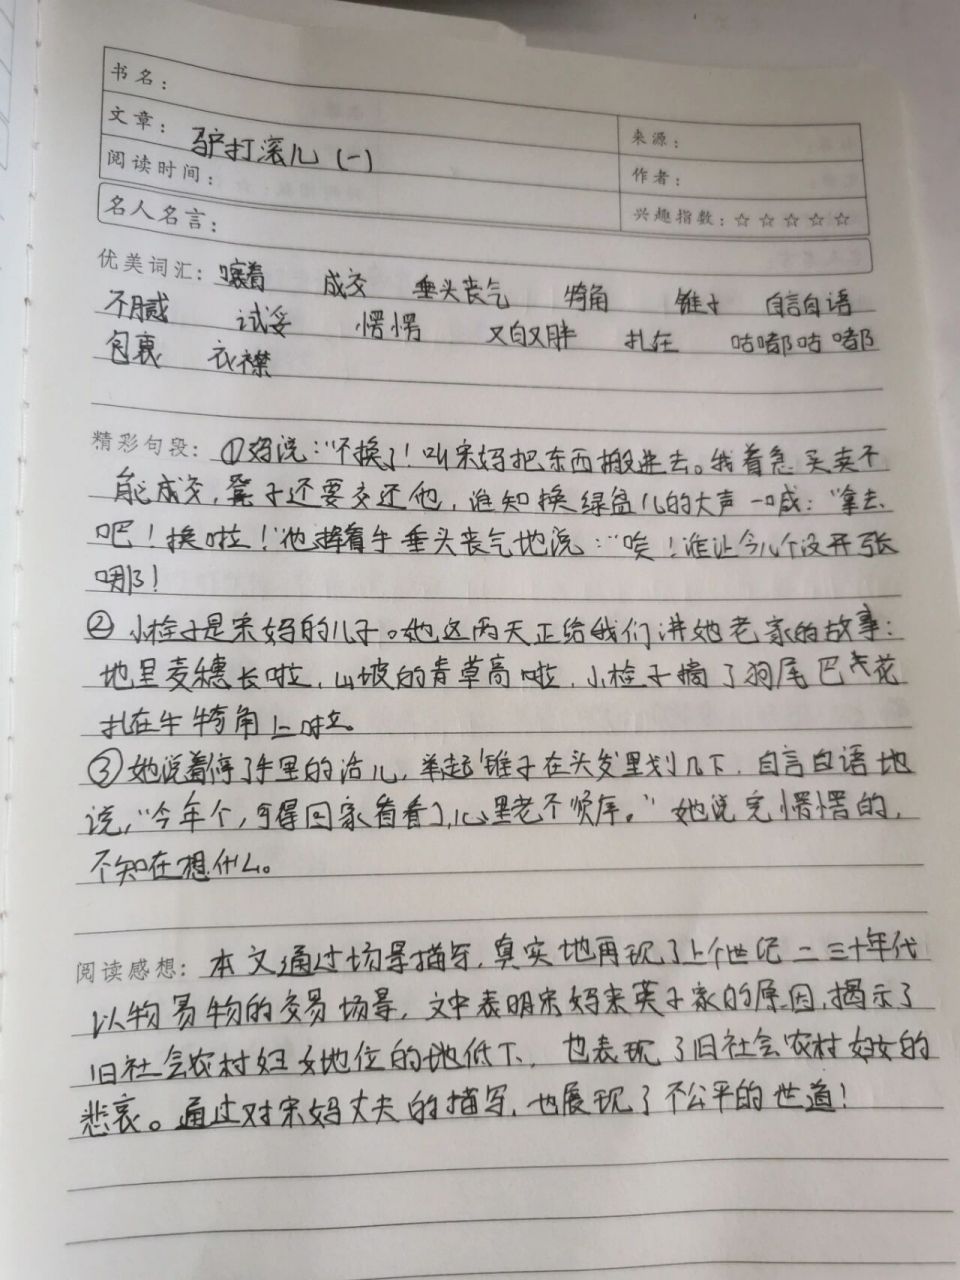 书名：
文章：驴打滚儿（一）
来源：
阅读时间：
作者：
名人名言：
兴趣指数：☆☆☆☆☆
优美词汇：嚷着 成交 垂头丧气 犄角 锥子 自言自语
不腻 试妥 愣愣 又白又胖 扎在 咕嘟咕嘟
包裹 衣襟
精彩句段：①妈说："不换了！叫宋妈把东西搬进去。我着急买卖不
能成交，凳子还要交还他，谁知换绿盆儿的大声一喊："拿去
吧！换啦！"他挥着手垂头丧气地说："唉！谁让今儿个没开张
哪！
②小栓子是宋妈的儿子。她这两天正给我们讲她老家的故事：
地里麦穗长啦，山坡的青草高啦，小栓子摘了狗尾巴花
扎在牛犄角上啦。
③她说着停了手里的活儿，举起锥子在头发里划几下，自言自语地
说，"今年个，可得回家看看了，心里老不顺序。"她说完愣愣的，
不知在想什么。
阅读感想：本文通过场景描写，真实地再现了上个世纪二三十年代
以物易物的交易场景，文中表明宋妈来英子家的原因，揭示了
旧社会农村妇女地位的地低下，也表现了旧社会农村妇女的
悲哀。通过对宋妈丈夫的描写，也展现了不公平的世道！